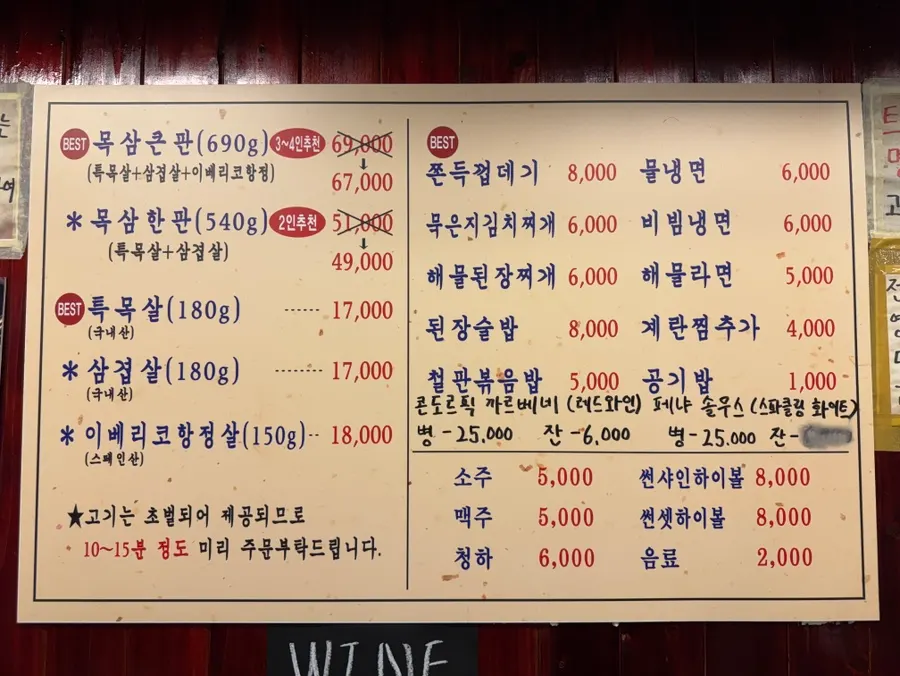 BEST 목삼큰판(690g) 3~4인추천 69,000
(특목살+삼겹살+이베리코항정) ↓
67,000
* 목삼한판(540g) 2인추천 51,000
(특목살+삼겹살) ↓
49,000
BEST 특목살(180g) ------ 17,000
(국내산)
* 삼겹살(180g) -------- 17,000
(국내산)
* 이베리코항정살(150g)-- 18,000
(스페인산)
★고기는 초벌되어 제공되므로
10~15분 정도 미리 주문부탁드립니다.
BEST
쫀득껍데기 8,000 물냉면 6,000
묵은지김치찌개 6,000 비빔냉면 6,000
해물된장찌개 6,000 해물라면 5,000
된장술밥 8,000 계란찜추가 4,000
철판볶음밥 5,000 공기밥 1,000
콘도르픽 까르베네 (레드와인) 페냐 솔우스 (스파클링 화이트)
병 -25.000 잔 -6,000 병-25.000 잔-
소주 5,000 썬샤인하이볼 8,000
맥주 5,000 썬셋하이볼 8,000
청하 6,000 음료 2,000
WINE